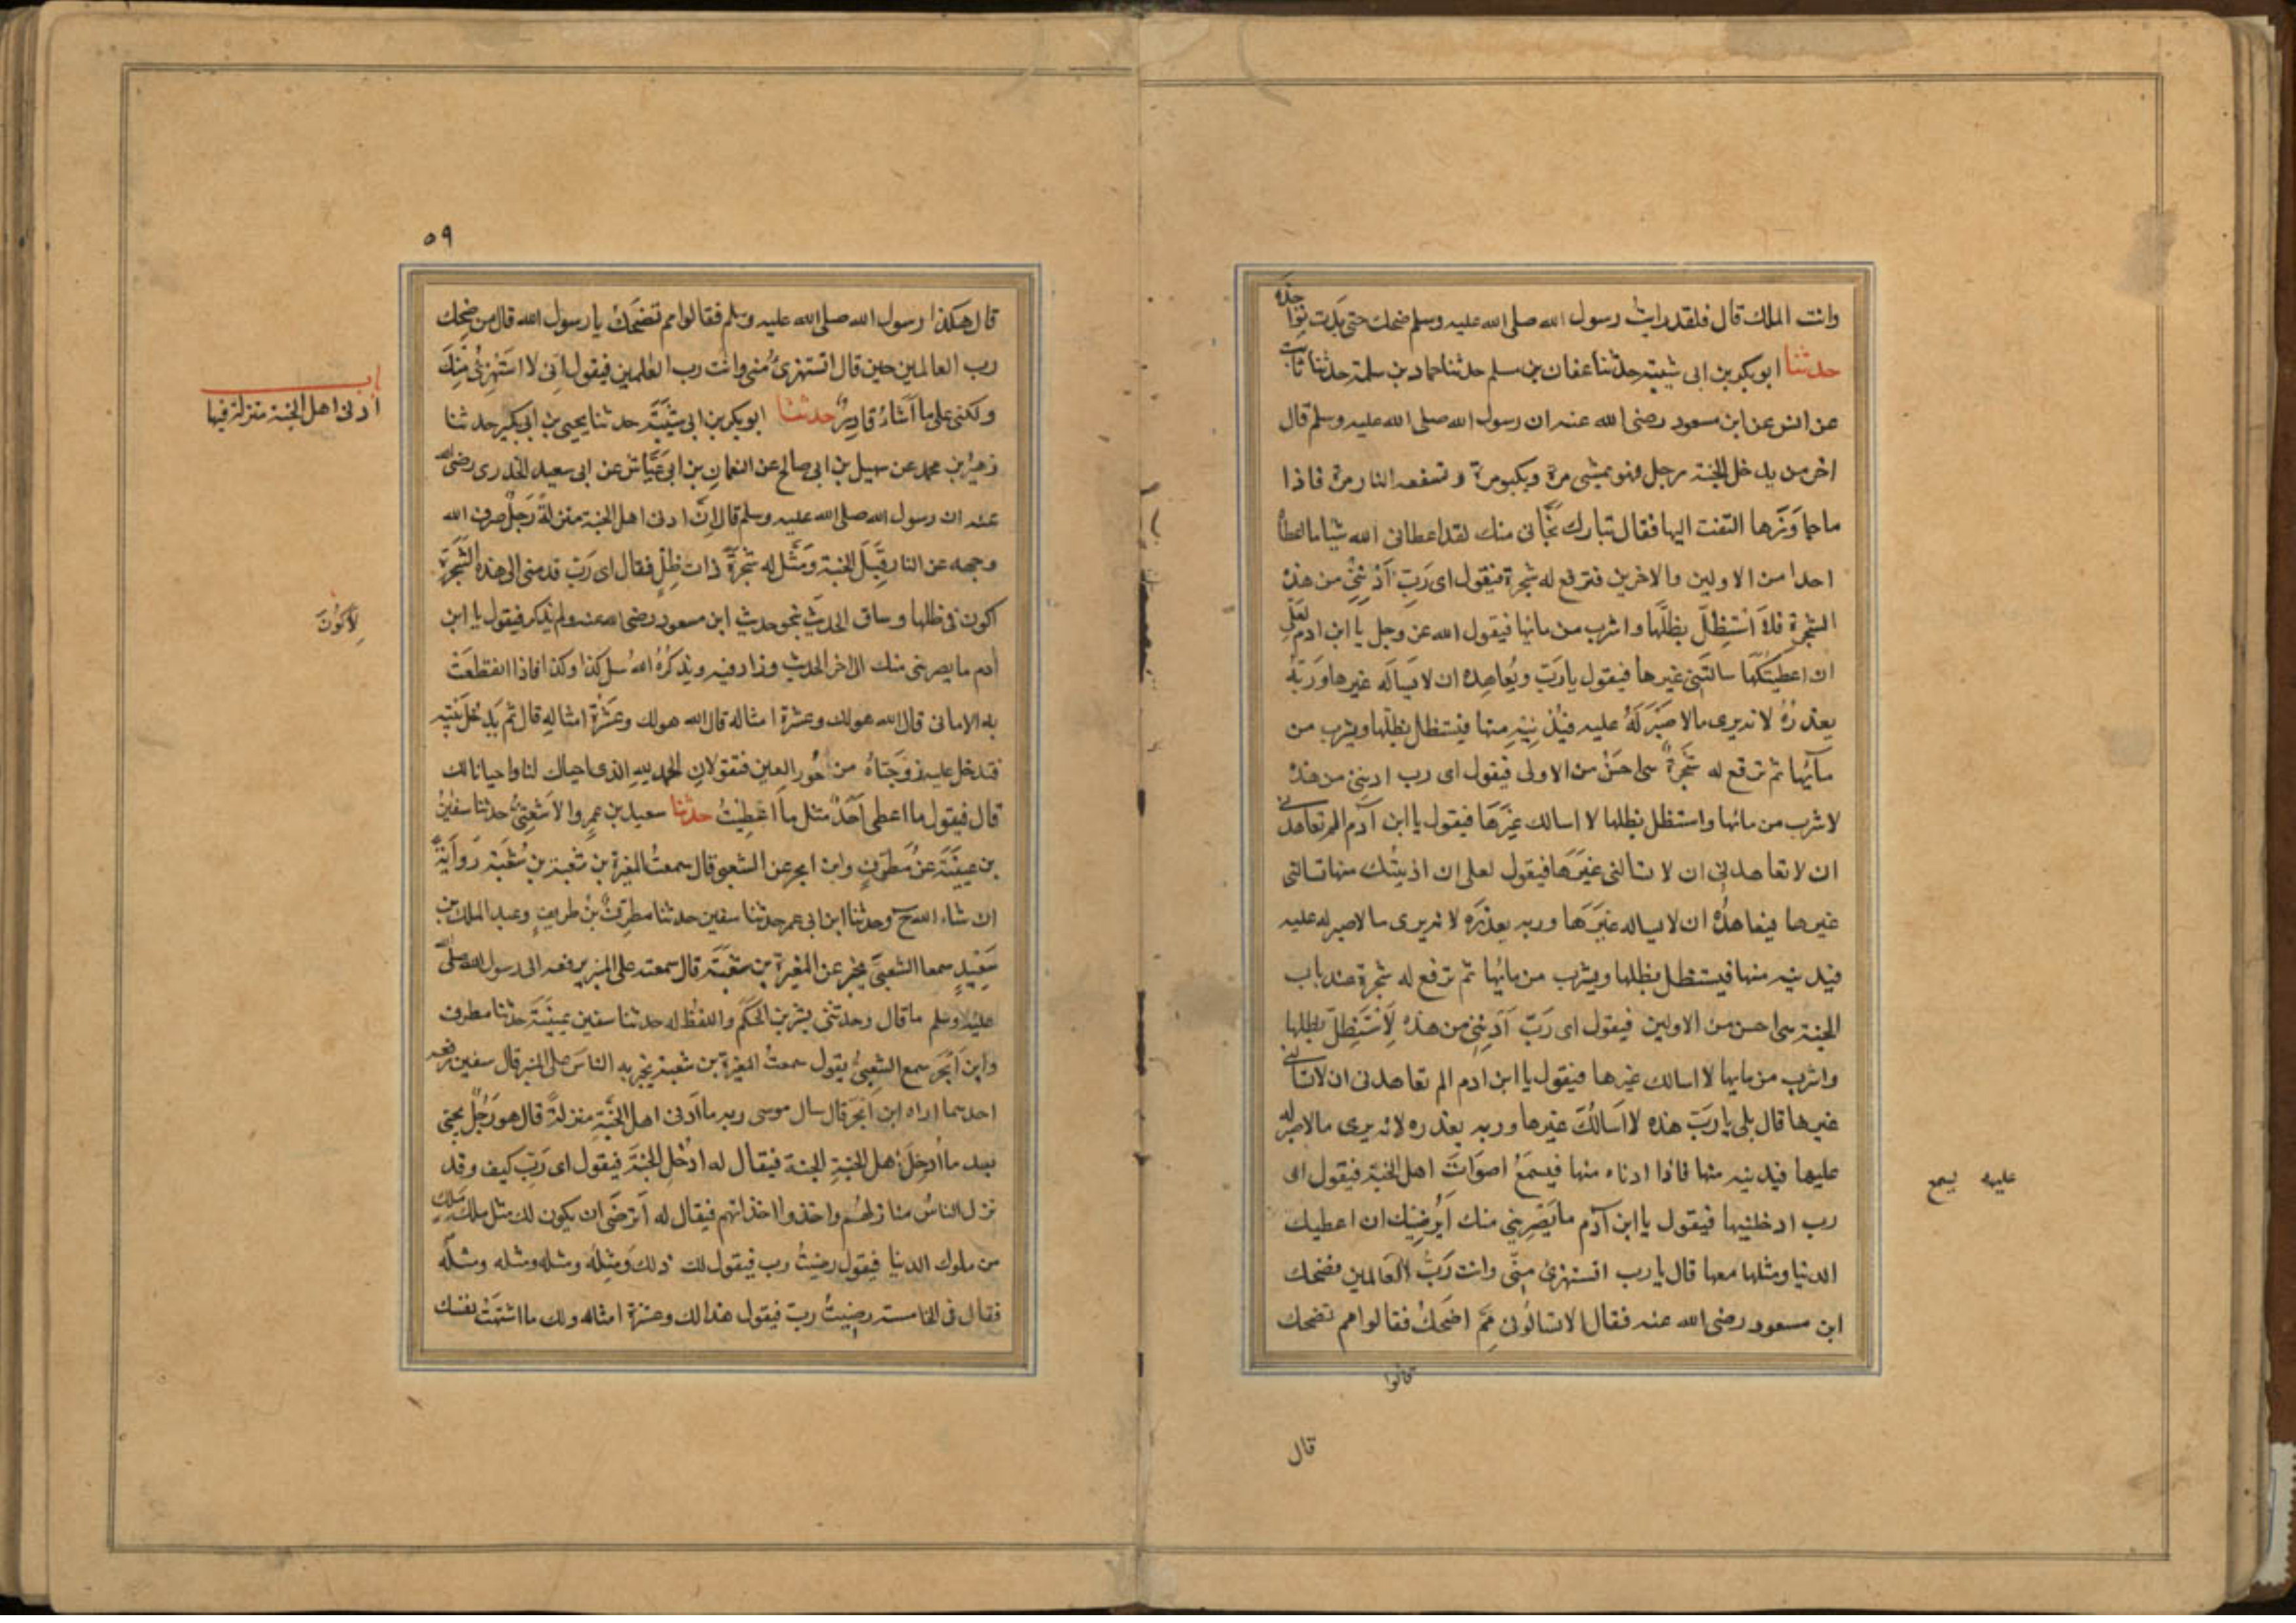 وانت الملك قال فلقد رايت رسول الله صلى الله عليه وسلم ضحك حتى بدت نواجذه
حدثنا ابو بكر بن ابى شيبة حدثنا عفان بن مسلم حدثنا حماد بن سلمة حدثنا ثابت
عن انس عن ابن مسعود رضى الله عنه ان رسول الله صلى الله عليه وسلم قال
اخر من يدخل الجنة رجل فهو يمشى مرة ويكبو مرة وتسفعه النار مرة فاذا
ما جاوَزَها التفت اليها فقال تبارك نجّانى منك لقد اعطانى الله شيا ما اعطاه
احدا من الاولين والاخرين فترفع له شجرة فيقول اى رَبّ اَدْنِنِى من هذه
الشجرة فلاَ اسْتظِلّ بظلّها واشرب من مائها فيقول الله عز وجل يا ابن ادم لعَلّى
ان اعطيتكهَا سالتَنى غيرها فيقول يا رَبّ ويُعاهِده ان لا يَسالَه غيرها وَرَبّهُ
يعذرُهُ لانه يرى ما لا صَبْرَ لَهُ عليه فيُدْنِيْهِ منها فيستظل بظلّها ويشرب من
مآئِها ثم ترفع له شجَرةٌ هى احسَنُ من الاولى فيقول اى رب ادننِى من هذه
لاشرب من مائها واستظل بظلها لا اسالك غيْرَهَا فيقول يا ابن آدم الم تعاهدنى
ان لا تعاهدنى ان لا تسالنى غيرَهَا فيقول لعلى ان ادنيتُك منها تسالنى
غيرها فيعاهدُه ان لا يساله غيَرَهَا وربه يعذرَه لانه يرى ما لا صبر له عليه
فيدنيه منها فيستظل بظلها ويشرب من مائِها ثم ترفع له شجرة عند باب
الجنة هى احسن من الاوليين فيقول اى رَبّ اَدْنِنِى من هذه لِاَسْتَظِلّ بظلها
واشرب من مايها لا اسالك غيرها فيقول يا ابن ادم الم تعاهدنى ان لا تسالنى
غيرها قال بلى يا رَبّ هذه لا اَسَالُكَ غيرها وربه يعذره لانه يرى ما لا صبر له
عليها فيدنيه منها فاذا ادناه منها فيسمَعُ اصوَاتَ اهل الجنة فيقول اى
عليه يسمع
رب ادخلنيها فيقول يا ابن آدم ما يَصْرِينى منك اَيُرضِيْك ان اعطيك
الدنيا ومثلها معها قال يا رب اتستهزئ مِنّى وانت رَبُّ العَالمين فضحك
ابن مسعود رضى الله عنه فقال الا تسالُونى مِمّ اضحَكُ فقالوا مم تضحك
قالوا
قال
٥٩
قال هكذا رسول الله صلى الله عليه وسلم فقالوا مم تضحَكُ يا رسول الله قال من ضحِك
رب العالمين حين قال اتستهزئُ مُنى وانْت رب العٰلمين فيقول اَنى لا استَهْزِئُ مِنْكَ
ولكنى على ما اَشاءُ قادِرٌ حدثنا ابو بكر بن ابى شَيْبَةَ حدثنا يحيى بن ابى بكير حدثنا
باب
ادنى اهل الجنة منزلة فيها
زهيرُ بن محمد عن سهيل بن ابى صالح عن النعمان بن ابى عَيّاش عن ابى سعيد الخدرى رضى الله
عنه ان رسول الله صلى الله عليه وسلم قال اِنّ ادنى اهل الجنة منزلةً رَجلٌ صرف الله
وجهه عن النار قِبَلَ الجنة ومَثّل له شجَرَةً ذات ظِلٍّ فقال اى رَبّ قدمنى الى هذه الشجَرَة
اكون فى ظلها وساق الحديثَ بنحو حديث ابن مسعود رضى الله عنه ولم يذكر فيقول يا ابن
لِاَكُونَ
اٰدم ما يصرينى منك الى اخر الحديث وزاد فيه ويذكرُهُ اللهُ سل كذا وكذا فاذا انقطعَتْ
به الامانى قال الله هو لك وعشرة امثاله قال الله هو لك وعَشْرَة امثاله قال ثم يَدْخل بَيْتِه
فتدخل عليه زوجَتاهُ من الحُور العِين فتقولانِ الحمد لِلّهِ الذى احياك لنا واحيانا لك
قال فيقول ما اعطى اَحَدٌ مثل ما اُعْطِيتُ حدثنا سعيد بن عمرٍو الاَشْعثِىُّ حدثنا سفينُ
بن عيينَة عن مُطَرّفٍ وابن ابجر عن الشعبى قال سمعتُ المغيرة بن شعبة بن شُعْبَة رَوايةً
ان شاء الله ح وحدثنا ابن ابى عمر حدثنا سفين حدثنا مطرّفُ بنُ طريفٍ وعبد الملك بن
سَعِيدٍ سمعا الشعبىَّ يخبر عن المغيرة بن شعْبَة قال سمعته على المنبر يرفعه الى رسول الله صلى الله
عليه وسلم ما قال وحدثنى بشر بن الحَكَم واللفظُ له حدثنا سفين عيينَة حدثنا مطرف
وابن اَبْجَرَ سمع الشعْبىَّ يقول سمعتُ المغيرة بن شعبة يخبر به الناسَ على المنبر قال سفين رفعه
احدهما اراه ابن اَبْجَرَ قال سال موسى ربه ما اَدْنى اهل الجنّةِ منزلةً قال هو رَجُلٌ يجئ
بعد ما اُدْخِلَ اَهل الجنّةِ الجنة فيقال له ادْخُلِ الجنّةَ فيقول اى رَبّ كيف وقد
نزل الناسُ منازلهُم واخذوا اخذاتهم فيقال له اَترْضَى ان يكون لك مثل ملكِ مَلِكٍ
من ملوك الدنيا فيقول رضيتُ رب فيقول لك ذلكَ ومِثلُه ومثله ومثله ومثله
فقال فى الخامسة رضيتُ ربّ فيقول هذا لك وعشرة امثاله ولك ما اشتهَتْ نفسك